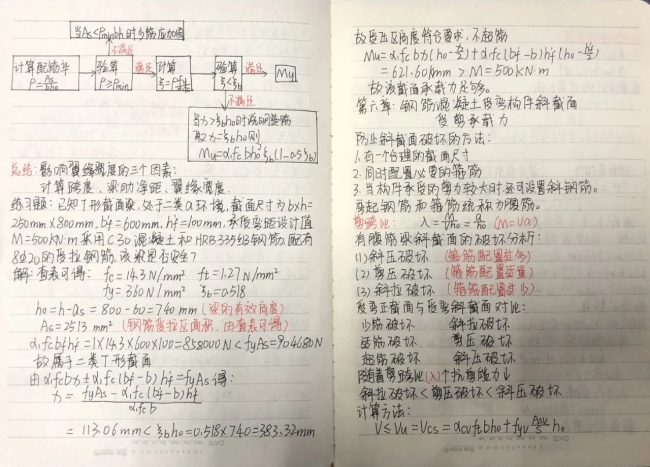 当As<ρminbh时少筋应加固
不满足
计算配筋率 ρ=As/bh0
验算 ρ≥ρmin
满足
计算
验算 ξ<ξb
满足
Mu
不满足
Mu=α1fcbh0²ξb(1-0.5ξb)
总结:影响翼缘宽度的三个因素:
计算跨度、梁肋净距、翼缘高度.
练习题:已知T形截面梁,处于二类a环境,截面尺寸为b×h=
250mm×800mm,bf'=600mm,hf'=100mm,承受弯距设计值
M=500KN·m 采用C30混凝土和HRB335级钢筋,配有
8Φ20的受拉钢筋,该梁是否安全?
解:查表可得: fc=14.3N/mm² ft=1.27N/mm²
fy=360N/mm² ξb=0.518
h0=h-as=800-60=740mm (梁的有效高度)
As=2513mm² (钢筋受拉区面积,由查表可得)
α1fcbf'hf'=1×14.3×600×100=858000N<fyAs=904680N
故属于二类T形截面
由α1fcbx+α1fc(bf'-b)hf'=fyAs得:
x=(fyAs-α1fc(bf'-b)hf')/α1fcb
=113.06mm<ξbh0=0.518×740=383.32mm
故受压区高度符合要求,不超筋
Mu=α1fcbx(h0-x/2)+α1fc(bf'-b)hf'(h0-hf'/2)
=621.60KNm>M=500KN·m
故该截面承载力足够。
第六章:钢筋混凝土受弯构件斜截面
受剪承载力
防止斜截面破坏的方法:
1.有一个合理的截面尺寸
2.同时配置必要的箍筋
3.当构件承受的剪力较大时还可设置斜钢筋。
弯起钢筋和箍筋统称为腹筋。
剪跨比: λ=M/Vh0=a/h0 (M=Va)
有腹筋梁斜截面的破坏分析:
(1)斜压破坏 (箍筋配置过多)
(2)剪压破坏 (箍筋配置适量)
(3)斜拉破坏 (箍筋配置过少)
受弯正截面与受弯斜截面对比:
少筋破坏 斜拉破坏
适筋破坏 剪压破坏
超筋破坏 斜压破坏
随着剪跨比(λ)↑抗剪能力↓
斜拉破坏<剪压破坏<斜压破坏
计算方法:
V≤Vu=Vcs=αcvftbh0+fyv Asv/s h0